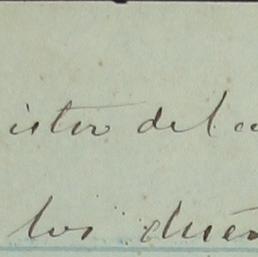 istro del c
los dueñ